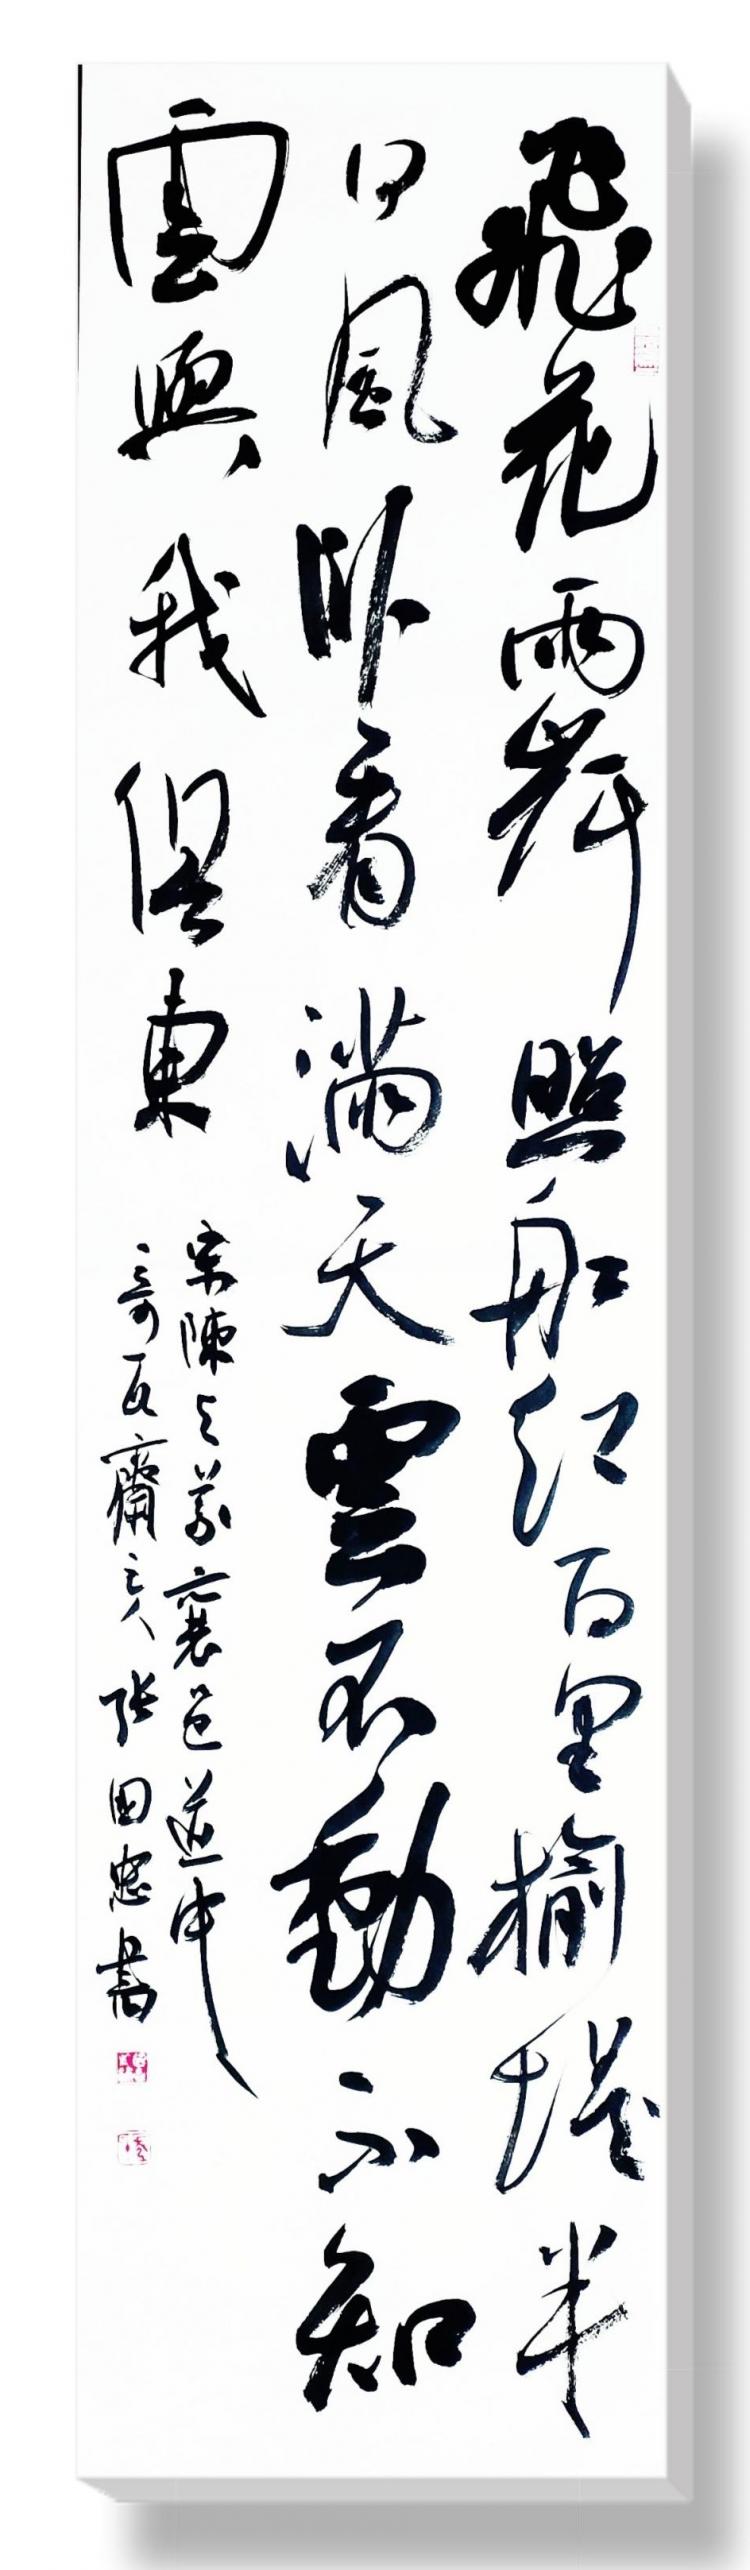 飛花兩岸照船紅百里榆堤半
日風卧看滿天雲不動不知
雲與我俱東
宋陳与義襄邑道中
奇瓦齋主人张国忠書